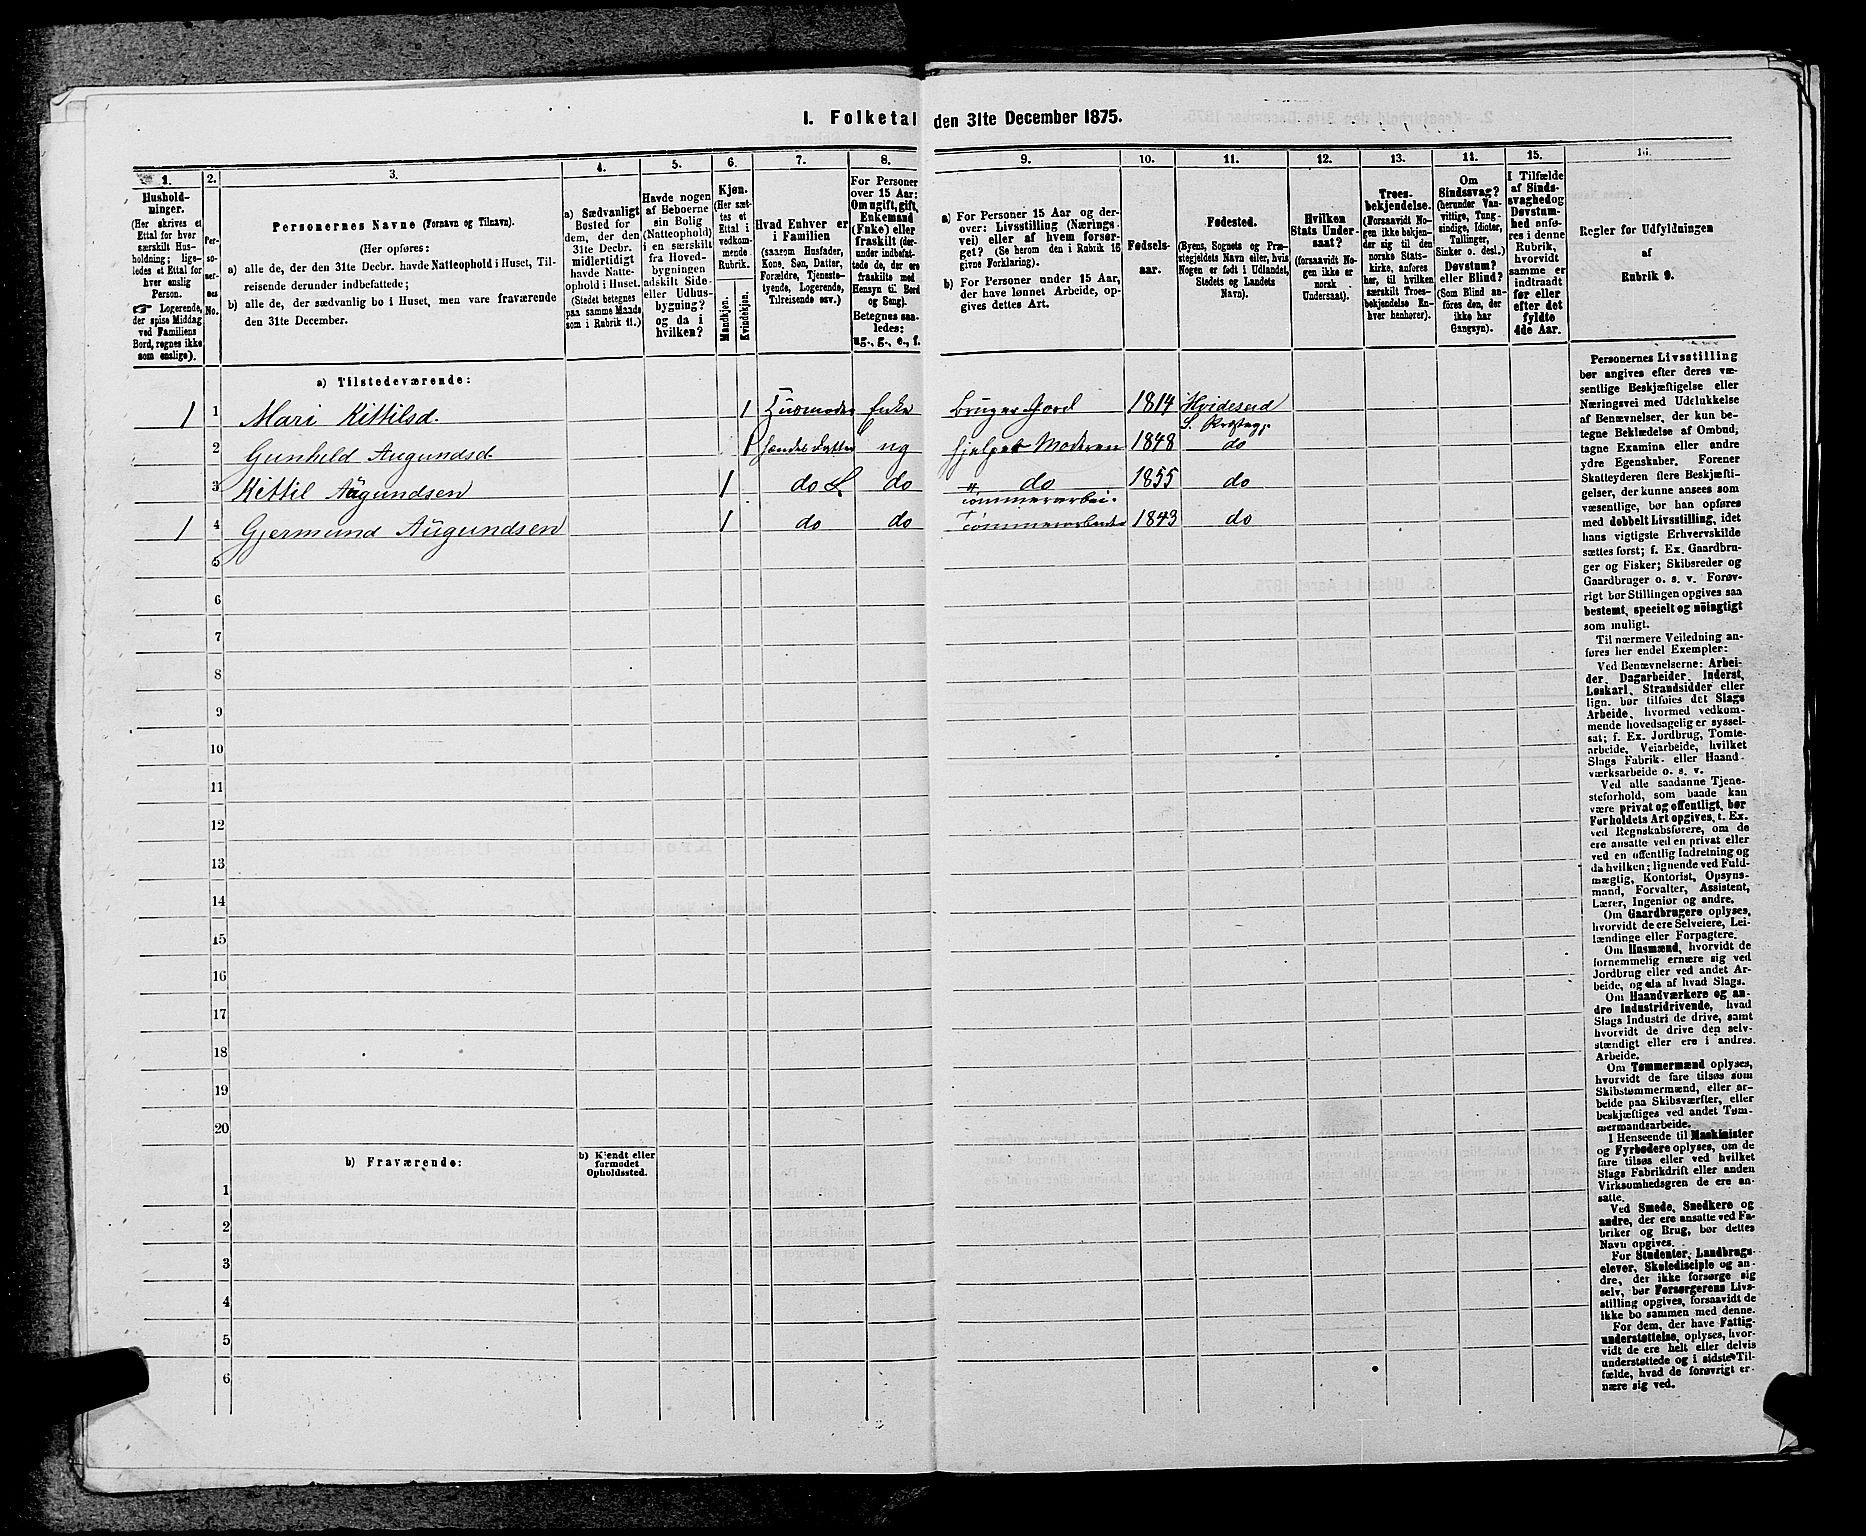 I. Folketal den 31te December 1875.
1.
Hushold-
ninger.
(Her skrives et
Ettal for hver
særskilt Hus-
holdning; lige-
ledes et Ettal for
hver enslig
Person.
☞ Logerende,
der spise Middag
ved Familiens
Bord, regnes ikke
som enslige).
2.
Per-
soner-
nes
No.
3.
Personernes Navne (Fornavn og Tilnavn).
(Her opføres:
a) alle de, der den 31te Decbr. havde Natteophold i Huset, Til-
reisende derunder indbefattede;
b) alle de, der sædvanlig bo i Huset, men vare fraværende
den 31te December.
4.
a) Sædvanligt
Bosted for
dem, der den
31te Decbr.
midlertidigt
havde Natte-
ophold i Huset.
(Stedet betegnes
paa samme Maade
som i Rubrik 11.)
5.
Havde nogen
af Beboerne
sin Bolig
(Natteophold)
i en særskilt
fra Hoved-
bygningen
adskilt Side-
eller Udhus-
bygning?
og da i
hvilken?
6.
Kjøn.
(Her sæt-
tes et
Ettal i
vedkom-
mende
Rubrik.
Mandkjøn.
Kvindekjøn.
7.
Hvad Enhver er
i Familien
(saasom Husfader,
Kone, Søn, Datter,
Forældre, Tjeneste-
tyende, Logerende,
Tilreisende osv.)
8.
For Personer
over 15 Aar:
Om ugift, gift,
Enkemand
(Enke) eller
fraskilt (der-
under indbefat-
tede de, der ere
fraskilte med
Hensyn til Bord
og Seng).
Betegnes saa-
ledes:
ug., g., e., f.
9.
a) For Personer 15 Aar og der-
over: Livsstilling (Nærings-
vei) eller af hvem forsør-
get? (Se herom den i Rubrik 16
givne Forklaring).
b) For Personer under 15 Aar,
der have lønnet Arbeide, op-
gives dettes Art.
10.
Fødsels-
aar.
11.
Fødested.
(Byens, Sognets og Præ-
stegjeldets Navn eller, hvis
Nogen er født i Udlandet,
Stedets og Landets
Navn).
12.
Hvilken
Stats Under-
saat?
(forsaavidt No-
gen ikke er
norsk
Undersaat).
13.
Troes-
bekjendelse.
(Forsaavidt No-
gen ikke bekjen-
der sig til den
norske Stats-
kirke, anføres
her, til hvilken
særskilt Troes-
bekjendelse En-
hver henhører).
14.
Om
Sindssvag?
(herunder Van-
vittige, Tung-
sindige, Idioter,
Tullinger,
Sinker o. desl.)
Døvstum?
eller Blind?
(Som Blind an-
føres den, der
ikke har
Gangsyn).
15.
I Tilfælde
af Sinds-
svaghed og
Døvstum-
hed anfø-
res i denne
Rubrik,
hvorvidt
samme er
indtraadt
før eller
efter det
fyldte
4de Aar.
16.
Regler for Udfyldningen
af
Rubrik 9.
a) Tilstedeværende:
1 1 Mari Kittilsd. 1 Husmoder Enke bruger Jord 1814 Hvideseid
S. Prstegj.
2 Gunhild Augundsd. 1 hendes Datter ug hjelper Moderen 1848 do
3 Kittil Augundsen 1 do do " do 1855 do
Tømmerarbei.
1 4 Gjermund Augundsen 1 do do Tømmerarbeider 1843 do
5
6
7
8
9
10
11
12
13
14
15
16
17
18
19
20
b) Fraværende:
b) Kjendt eller
formodet
Opholdssted.
1
2
3
4
5
6
Personernes Livsstilling
bør angives efter deres væ-
sentlige Beskjæftigelse eller
Næringsvei med Udelukkelse
af Benævnelser, der kun be-
tegne Beklædelse af Ombud,
tagne Examina eller andre
ydre Egenskaber. Forener
Skatteyderen flere Beskjæfti-
gelser, der kunne ansees som
væsentlige, bør han opføres
med dobbelt Livsstilling, idet
hans vigtigste Erhvervskilde
sættes først; f. Ex. Gaardbru-
ger og Fisker; Skibsreder og
Gaardbruger o. s. v. Forøv-
rigt bør Stillingen opgives saa
bestemt, specielt og nöiagtigt
som muligt.
Til nærmere Veiledning an-
føres her endel Exempler:
Ved Benævnelserne: Arbei-
der, Dagarbeider, Inderst,
Løskarl, Strandsidder eller
lign. bør tilføies det Slags
Arbeide, hvormed vedkom-
mende hovedsagelig er syssel-
sat; f. Ex. Jordbrug, Tomte-
arbeide, Veiarbeide, hvilket
Slags Fabrik- eller Haand-
værksarbeide o. s. v.
Ved alle saadanne Tjene-
steforhold, som baade kan
være privat og offentligt, bør
Forholdets Art opgives, t. Ex.
ved Regnskabsførere, om de
ere ansatte ved en privat eller
ved en offentlig Indretning og
da hvilken; lignende ved Fuld-
mægtig, Kontorist, Opsyns-
mand, Forvalter, Assistent,
Lærer, Ingeniør og andre.
Om Gaardbrugere oplyses,
hvorvidt de ere Selveiere, Lei-
lændinge eller Forpagtere.
Om Husmænd, hvorvidt de
fornemmelig ernære sig ved
Jordbrug eller ved andet Ar-
beide, og da af hvad Slags.
Om Haandværkere og an-
dre Industridrivende, hvad
Slags Industri de drive, samt
hvorvidt de drive den selv-
stændigt eller ere i andres
Arbeide.
Om Tømmermænd oplyses,
hvorvidt de fare tilsøs som
Skibstømmermænd, eller ar-
beide paa Skibsværfter, eller
beskjæftiges ved andet Tøm-
mermandsarbeide.
I Henseende til Maskinister
og Fyrbødere oplyses, om de
fare tilsøs eller ved hvilket
Slags Fabrikdrift eller anden
Virksomhedsgren de ere an-
satte.
Ved Smede, Snedkere og
andre, der ere ansatte ved Fa-
briker og Brug, bør dettes
Navn opgives.
For Studenter, Landbrugs-
elever, Skoledisciple og an-
dre, der ikke forsørge sig
selv, bør Forsørgerens Livs-
stilling opgives, forsaavidt de
ikke bo sammen med denne.
For dem, der have Fattig-
understøttelse, oplyses, hvor-
vidt de ere helt eller delvis
understøttede og i sidste Til-
fælde, hvad de forøvrigt er-
nære sig ved.